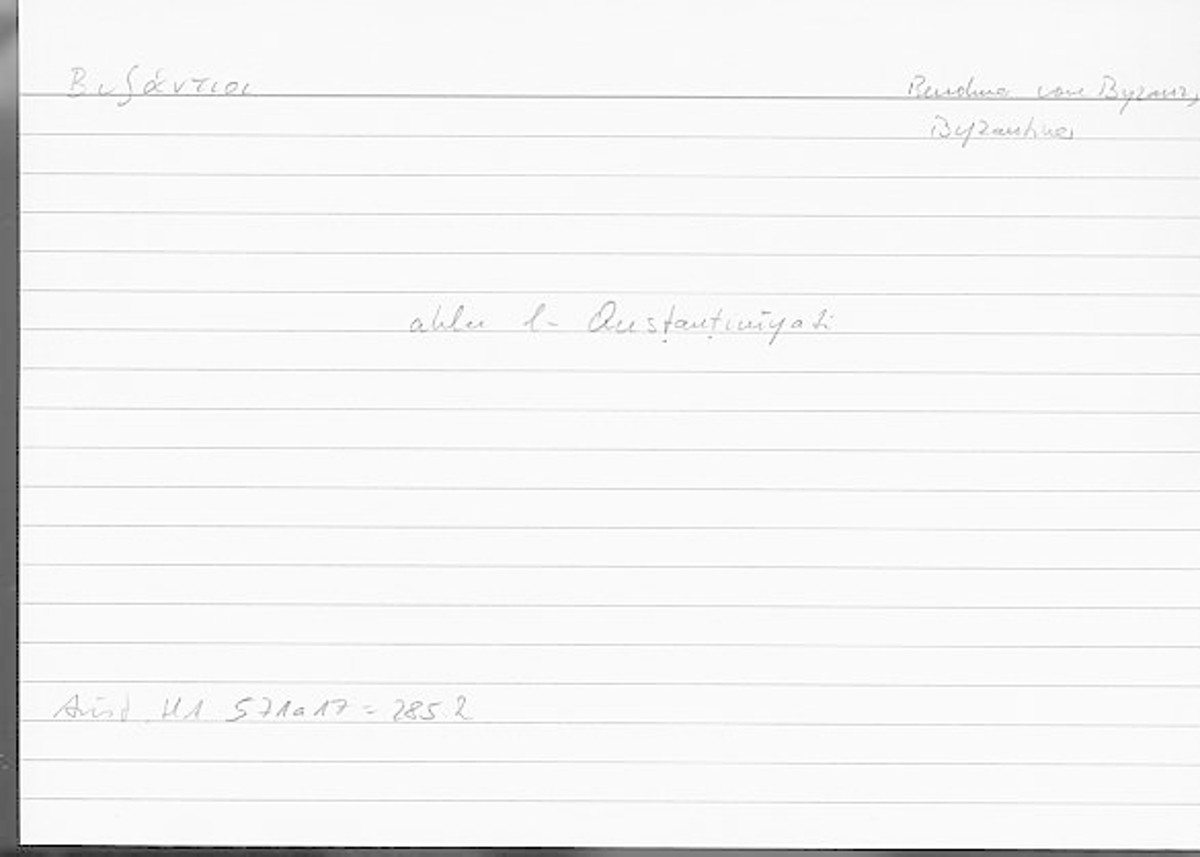 Βυζάντιοι
Bewohner von Byzanz,
Byzantiner
ahlu l-Qusṭanṭīnīyati
Arist. HA 571a17 = 285 2